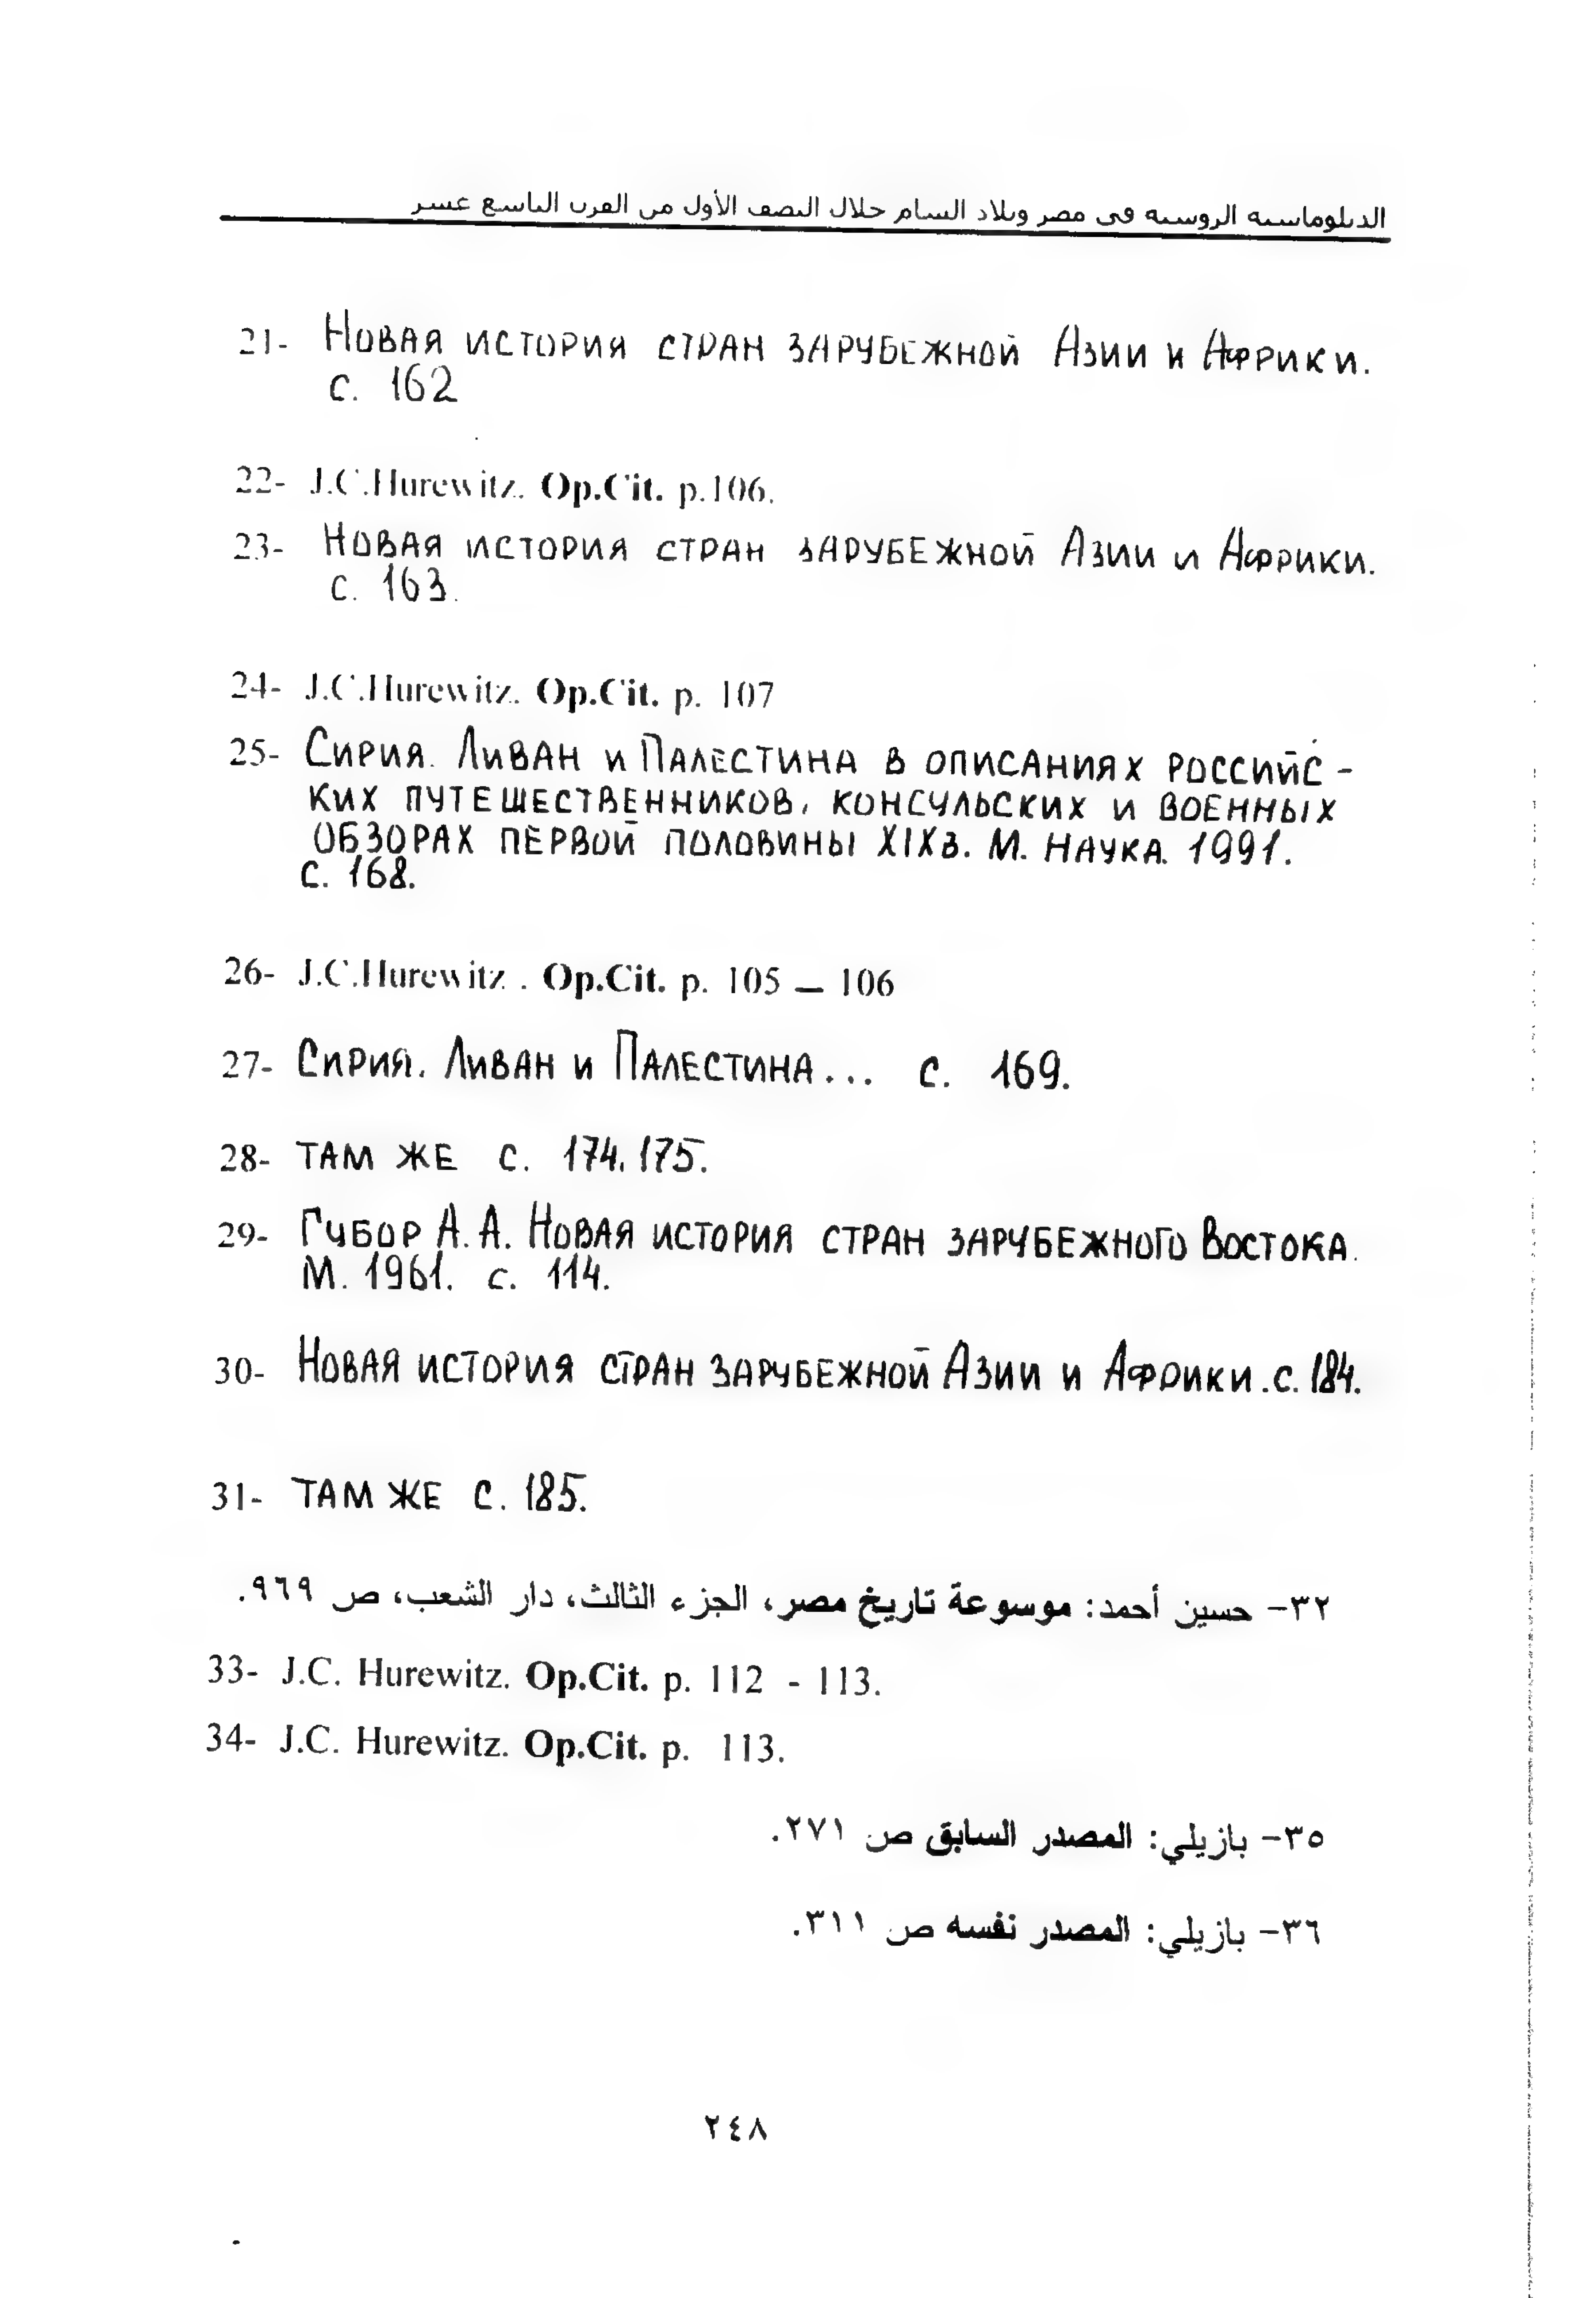 الدبلوماسية الروسية في مصر وبلاد الشام خلال النصف الأول من القرن التاسع عشر
21- Новая история стран зарубежной Азии и Африки.
с. 162
22- J.C.Hurewitz. Op.Cit. p.106.
23- Новая история стран зарубежной Азии и Африки.
с. 163.
24- J.C.Hurewitz. Op.Cit. p. 107
25- Сирия. Ливан и Палестина в описаниях российс -
ких путешественников, консульских и военных
обзорах первой половины XIXв. М. Наука. 1991.
с. 168.
26- J.C.Hurewitz . Op.Cit. p. 105 – 106
27- Сирия. Ливан и Палестина... с. 169.
28- ТАМ ЖЕ с. 174, 175.
29- Губор А. А. Новая история стран зарубежного Востока.
М. 1961. с. 114.
30- Новая история стран зарубежной Азии и Африки.с. 184.
31- ТАМ ЖЕ с. 185.
٣٢- حسين أحمد: موسوعة تاريخ مصر، الجزء الثالث، دار الشعب، ص ٩٦٩.
33- J.C. Hurewitz. Op.Cit. p. 112 - 113.
34- J.C. Hurewitz. Op.Cit. p. 113.
٣٥- بازيلي: المصدر السابق ص ٢٧١.
٣٦- بازيلي: المصدر نفسه ص ٣١١.
٢٤٨